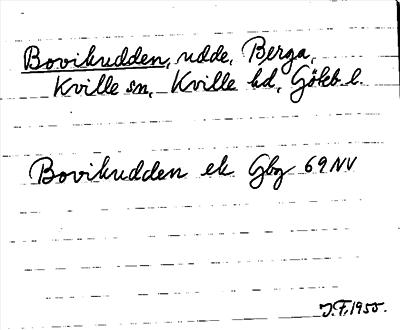 Bovikudden, udde, Berga,
Kville sn, Kville hd, Göteb l.
Bovikudden ek Gbg 69 NV
J.F. 1955.